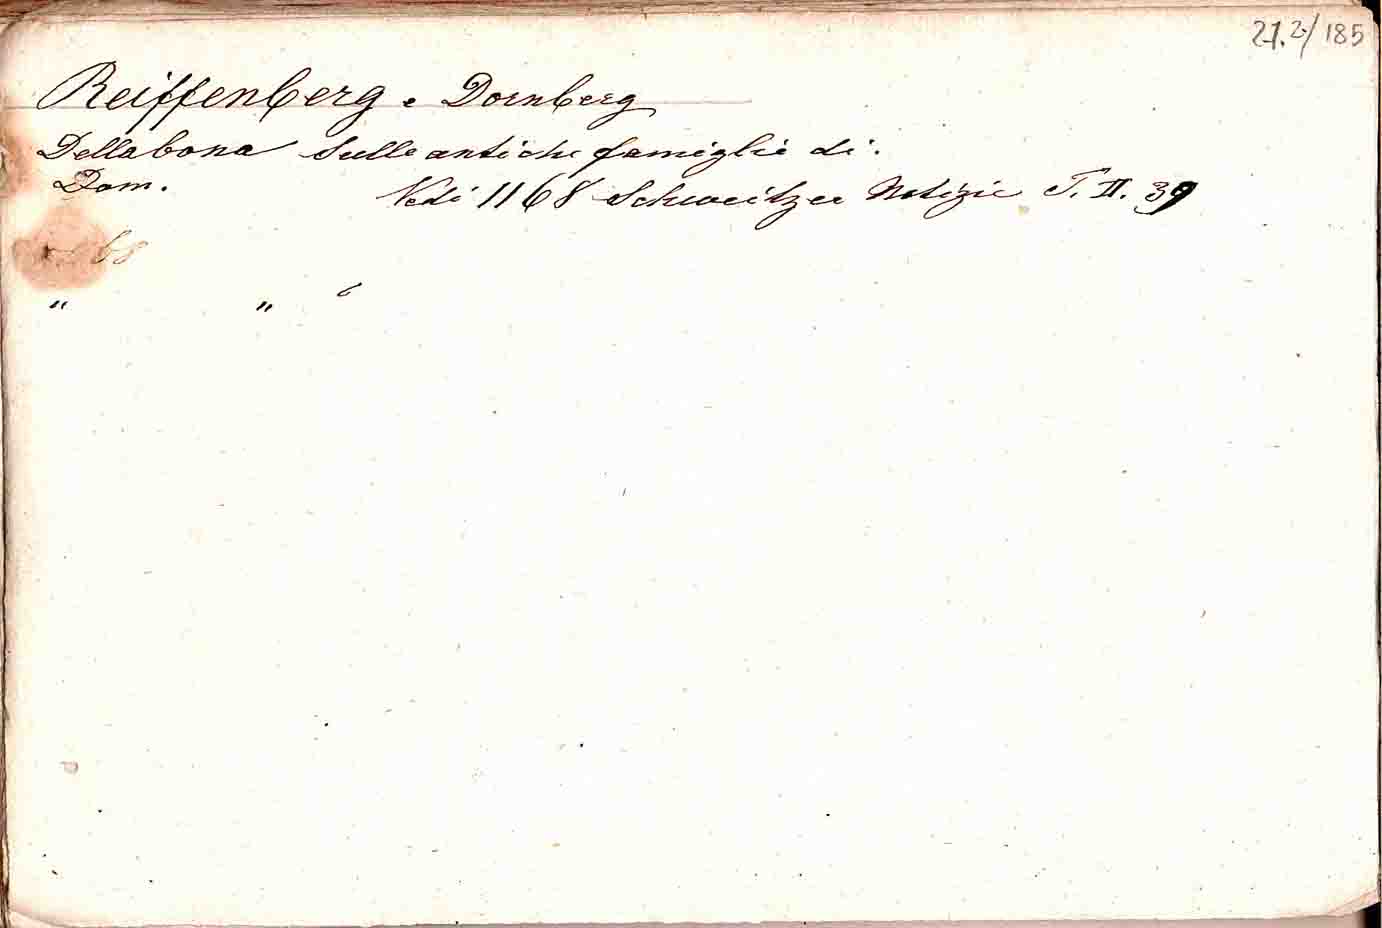 21.2/185
Reiffenberg e Dornberg
Dellabona Sulle antiche famiglie di.
Dom. Vedi 1168 Schweitzer Notizie T. II. 39
68
" " 6